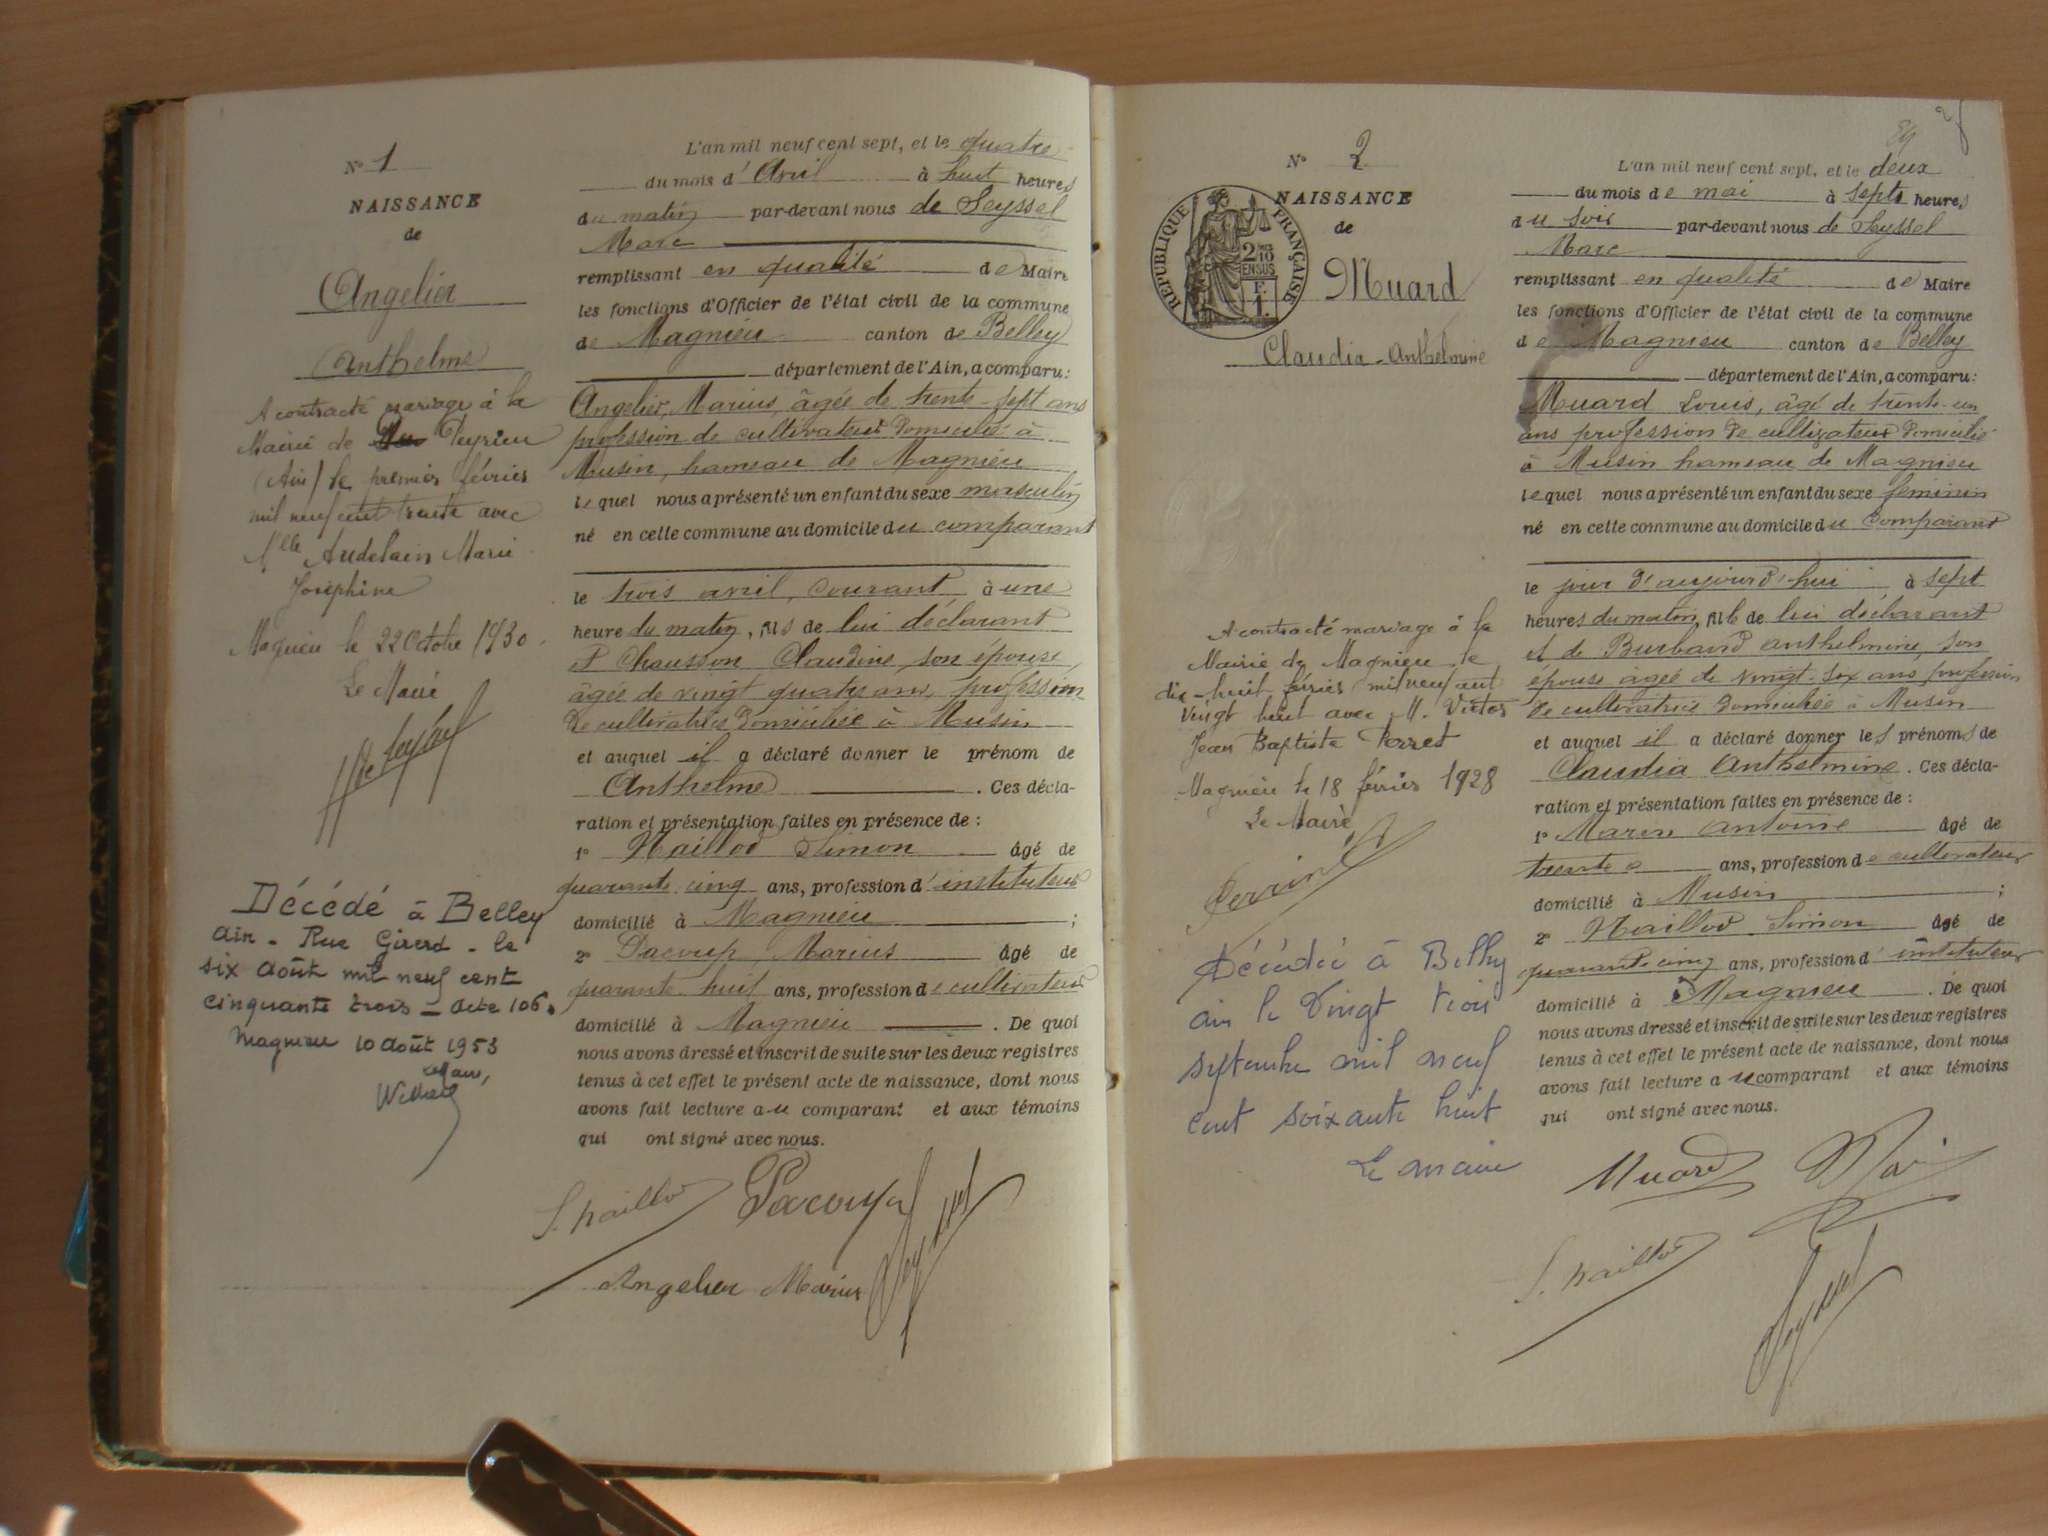 N° 1
NAISSANCE
de
Angelier
Anthelme
A contracté mariage à la
Mairie de Peyrieu
(Ain) le premier février
mil neuf cent trente avec
Mlle Audelain Marie
Joséphine
Magnieu le 22 Octobre 1930.
Le Maire
Décédé à Belley
Ain - Rue Girerd - le
six Août mil neuf cent
cinquante trois - Acte 106.
Magnieu 10 Août 1953
L'an mil neuf cent sept, et le quatre
du mois d'Avril à huit heures
du matin par-devant nous de Seyssel
Marc
remplissant en qualité de Maire
les fonctions d'Officier de l'état civil de la commune
de Magnieu canton de Belley
département de l'Ain, a comparu:
Angelier, Marius, âgée de trente-sept ans
profession de cultivateur domicilié à
Musin, hameau de Magnieu
lequel nous a présenté un enfant du sexe masculin
né en cette commune au domicile du comparant
le trois avril, courant, à une
heure du matin, fils de lui déclarant
et Chausson Claudine, son épouse,
âgée de vingt quatre ans, profession
de cultivatrice domiciliée à Musin
et auquel il a déclaré donner le prénom de
Anthelme. Ces décla-
ration et présentation faites en présence de :
1° Naillod Simon âgé de
quarante cinq ans, profession d'instituteur
domicilié à Magnieu ;
2° Pacoup, Marius âgé de
quarante-huit ans, profession de cultivateur
domicilié à Magnieu. De quoi
nous avons dressé et inscrit de suite sur les deux registres
tenus à cet effet le présent acte de naissance, dont nous
avons fait lecture au comparant et aux témoins
qui ont signé avec nous.
S. Naillod Pacoup
Angelier Marius
N° 2
NAISSANCE
de
RÉPUBLIQUE FRANÇAISE
2/10
EN SUS
F.
1.
Muard
Claudia-Anthelmine
A contracté mariage à la
Mairie de Magnieu le
dix-huit février mil neuf cent
vingt huit avec M. Victor
Jean Baptiste Perret
Magnieu le 18 février 1928
Le Maire
Perrin
Décédée à Belley
Ain le Vingt trois
septembre mil neuf
cent soixante huit
Le maire
L'an mil neuf cent sept, et le deux
du mois de mai à sept heures
du soir par-devant nous de Seyssel
Marc
remplissant en qualité de Maire
les fonctions d'Officier de l'état civil de la commune
de Magnieu canton de Belley
département de l'Ain, a comparu:
Muard Louis, âgé de trente-un
ans profession de cultivateur domicilié
à Musin hameau de Magnieu
lequel nous a présenté un enfant du sexe féminin
né en cette commune au domicile du comparant
le jour d'aujourd'hui à sept
heures du matin, fille de lui déclarant
et de Burbaud Anthelmine, son
épouse âgée de vingt-six ans profession
de cultivatrice domiciliée à Musin
et auquel il a déclaré donner les prénoms de
Claudia Anthelmine. Ces décla-
ration et présentation faites en présence de :
1° Marin Antoine âgé de
trente ans, profession de cultivateur
domicilié à Musin ;
2° Naillod Simon âgé de
quarante cinq ans, profession d'instituteur
domicilié à Magnieu. De quoi
nous avons dressé et inscrit de suite sur les deux registres
tenus à cet effet le présent acte de naissance, dont nous
avons fait lecture au comparant et aux témoins
qui ont signé avec nous.
Muard
S. Naillod